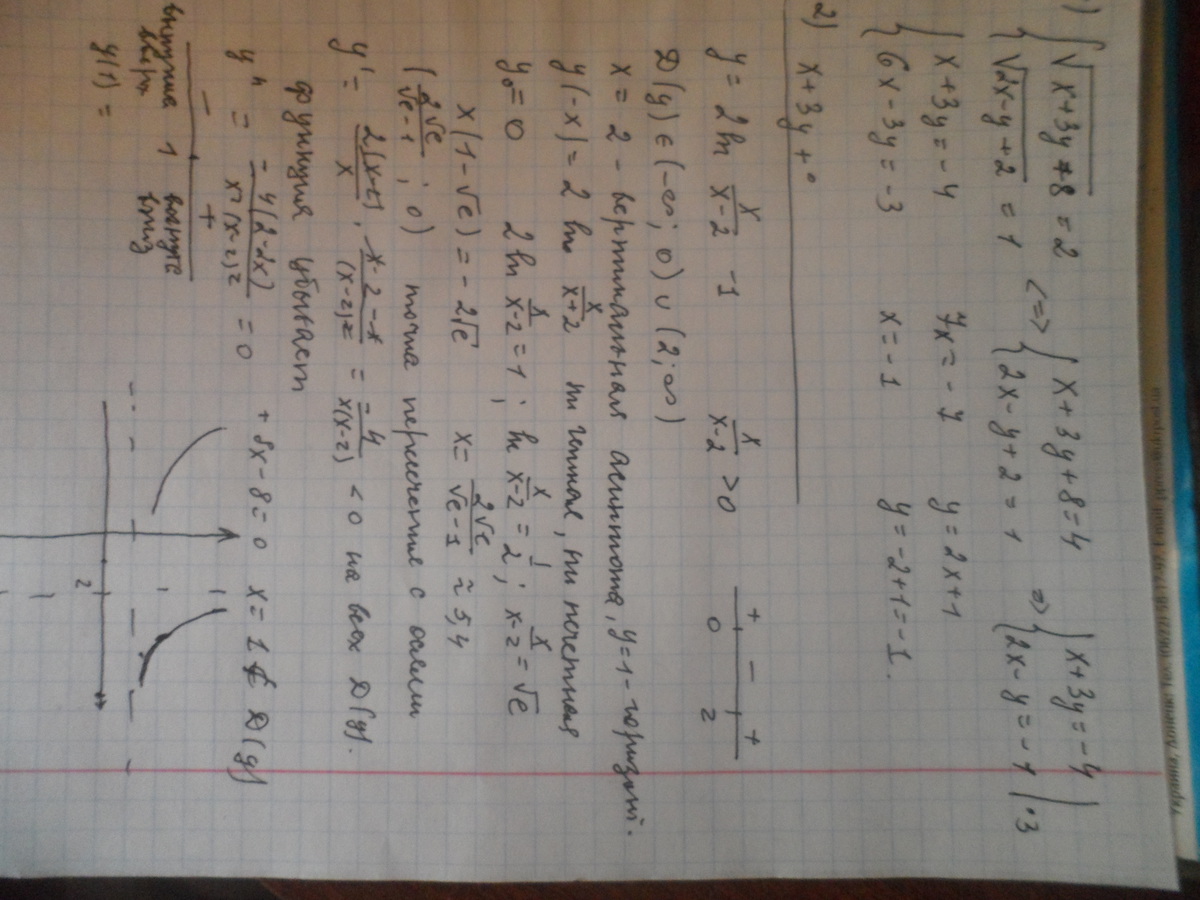 1) { √(x+3y+8) = 2
{ √(2x-y+2) = 1 <=> { x+3y+8=4
{ 2x-y+2=1 => { x+3y=-4
{ 2x-y=-1 | ·3
{ x+3y=-4
{ 6x-3y=-3
7x=-7
x=-1
y=2x+1
y=-2+1=-1.
2) x+3y+
y= 2 ln x/(x-2) -1 x/(x-2) >0 + 0 - 2 +
D(y) ∈ (-∞; 0) ∪ (2; ∞)
x=2 - вертикальная асимптота, y=1-горизонт.
y(-x) = 2 ln x/(x+2) ни четная, ни нечетная
y=0 2 ln x/(x-2) =1; ln x/(x-2) = 1/2; x/(x-2) = √e
x(1-√e) = -2√e x= 2√e/(√e-1) ≈ 5,4
(2√e/(√e-1); 0) точка пересечения с осями
y' = 2(x-2)/x · (x-2-x)/(x-2)² = -4/(x(x-2)) <0 на всех D(y).
функция убывает
y'' = -4(2-2x)/(x²(x-2)²) = 0 + 8x-8=0 x=1 ∉ D(y)
- +
выпукла вверх 1 вогнута вниз
y(1) =
2